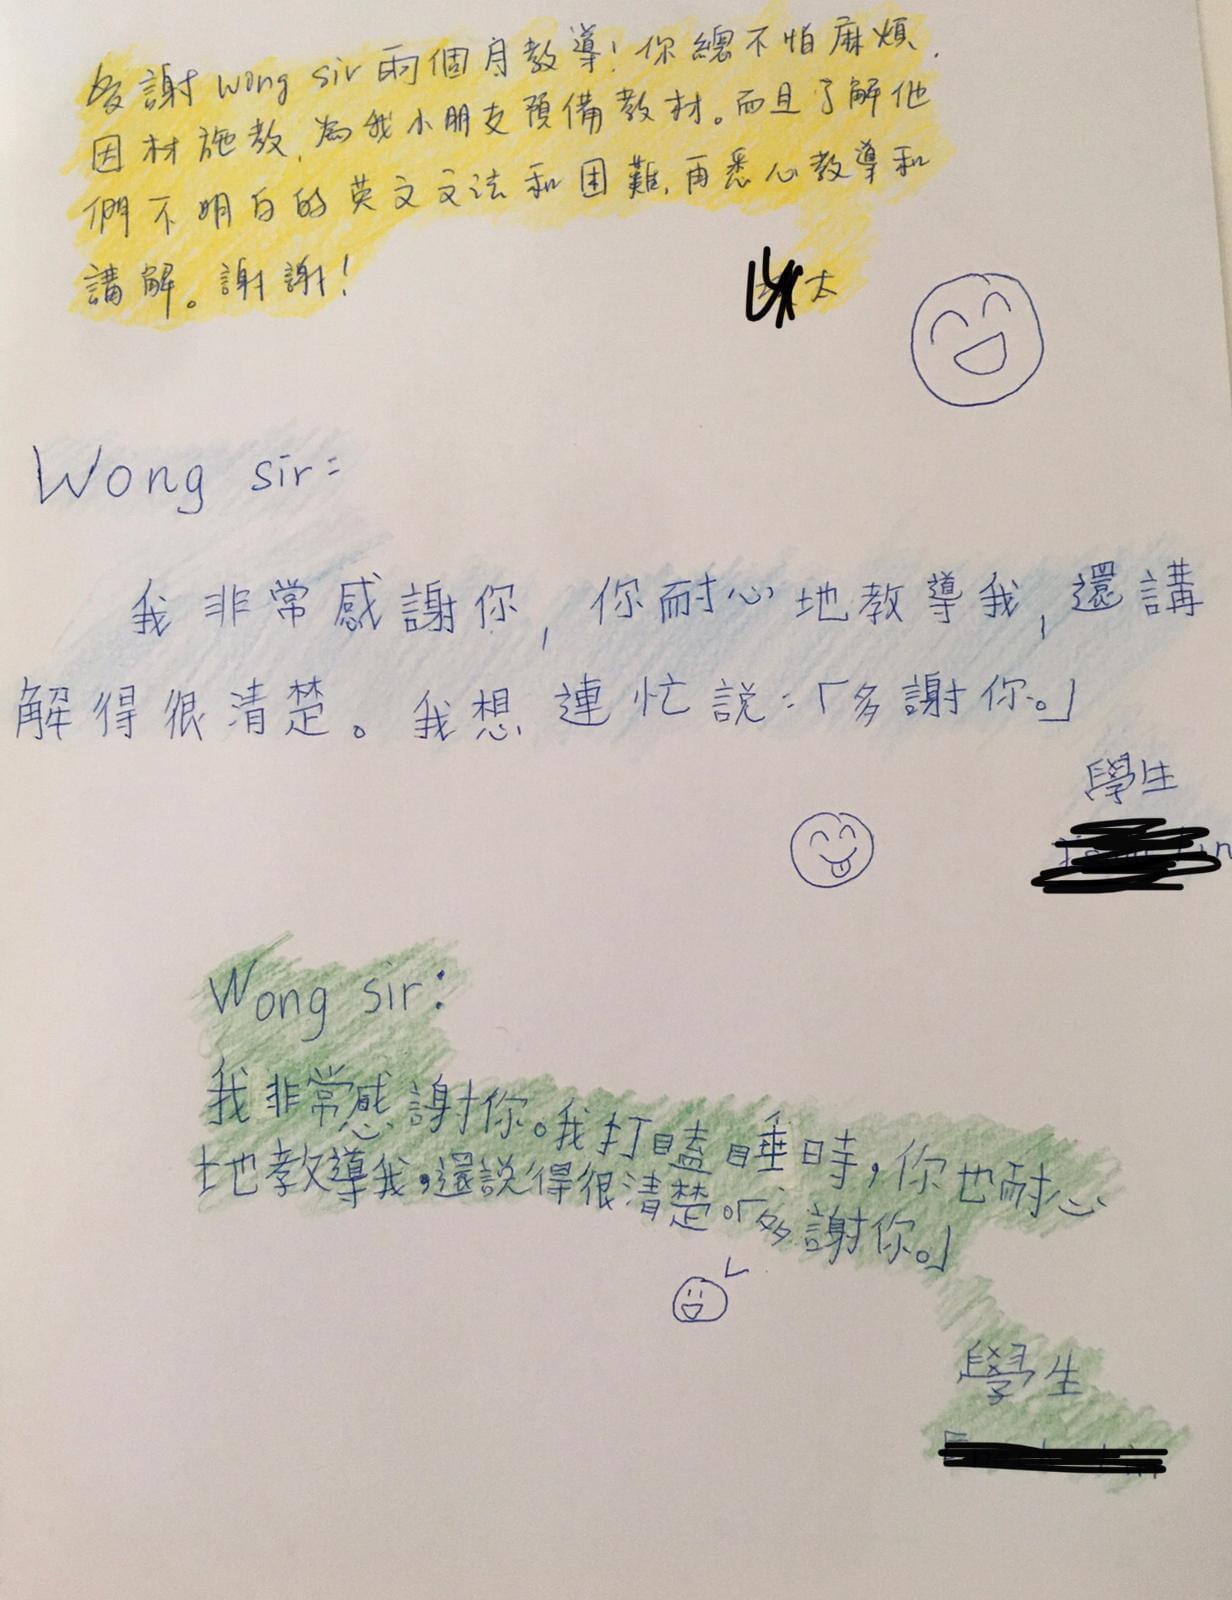 多謝 Wong sir 兩個月教導！你總不怕麻煩、
因材施教，為我小朋友預備教材。而且了解他
們不明白的英文文法和困難，再悉心教導和
講解。謝謝！
太
Wong sir：
我非常感謝你，你耐心地教導我，還講
解得很清楚。我想連忙說：「多謝你。」
學生
Wong sir：
我非常感謝你。我打瞌睡時，你也耐心
地教導我，還說得很清楚。「多謝你。」
學生